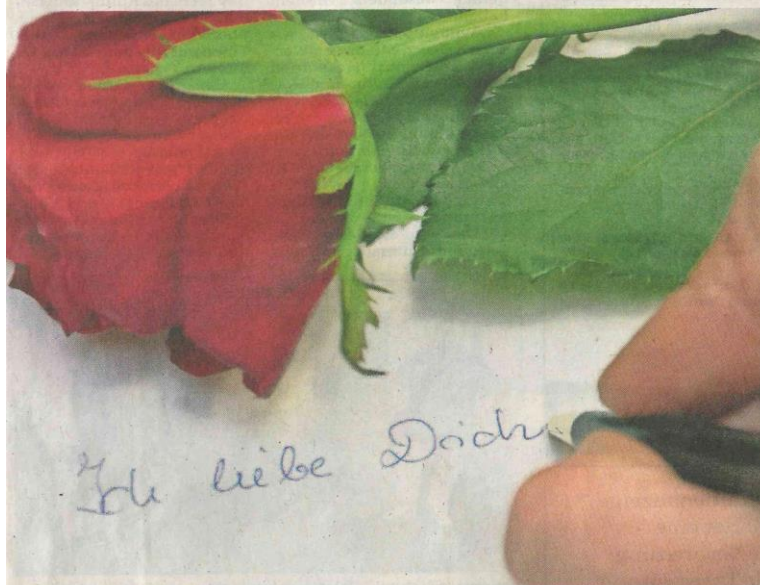 Ich liebe Dich